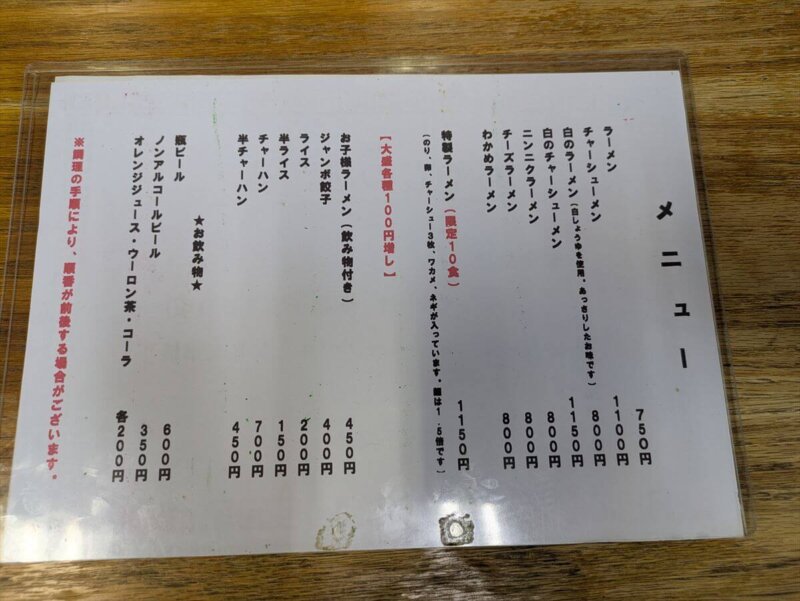 メニュー
ラーメン 750円
チャーシューメン 1100円
白のラーメン(白しょうゆを使用・あっさりしたお味です) 800円
白のチャーシューメン 1150円
ニンニクラーメン 800円
チーズラーメン 800円
わかめラーメン 800円
特製ラーメン(限定10食) 1150円
(のり、卵、チャーシュー3枚、ワカメ、ネギが入っています。麺は1.5倍です)
【大盛各種100円増し】
お子様ラーメン(飲み物付き) 450円
ジャンボ餃子 400円
ライス 200円
半ライス 150円
チャーハン 700円
半チャーハン 450円
★お飲み物★
瓶ビール 600円
ノンアルコールビール 350円
オレンジジュース・ウーロン茶・コーラ 各200円
※調理の手順により、順番が前後する場合がございます。